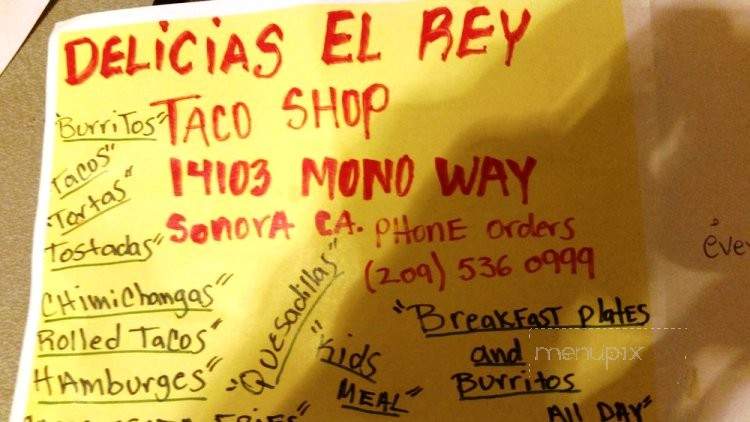 DELiCiAS EL REY
TACO SHOP
14103 MONO WAY
SONORA CA. PHONE orders
(209) 536 0999
"BurriTos"
Tacos"
"Tortas"
Tostadas"
CHimiChangas"
Rolled Tacos"
HAmburges"
"Quesadillas"
"Kids
MEAL"
"BreakFast plates
and
Burritos
All DAY"
FRIES"
menupix